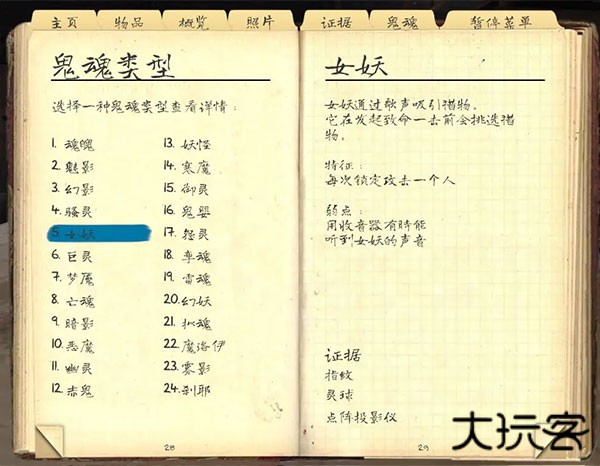 主页 物品 概览 照片 证据 鬼魂 暂停菜单
鬼魂类型
选择一种鬼魂类型查看详情：
1. 魂魄
2. 魅影
3. 幻影
4. 骚灵
5. 女妖
6. 巨灵
7. 梦魇
8. 亡魂
9. 暗影
10. 恶魔
11. 幽灵
12. 赤鬼
13. 妖怪
14. 寒魔
15. 御灵
16. 鬼婴
17. 怨灵
18. 孪魂
19. 雷魂
20. 幻妖
21. 拟魂
22. 魔洛伊
23. 雾影
24. 刹耶
28
女妖
女妖通过歌声吸引猎物。
它在发起致命一击前会挑选猎
物。
特征：
每次锁定攻击一个人
弱点：
用收音器有时能
听到女妖的声音
证据
指纹
灵球
点阵投影仪
29
大玩客